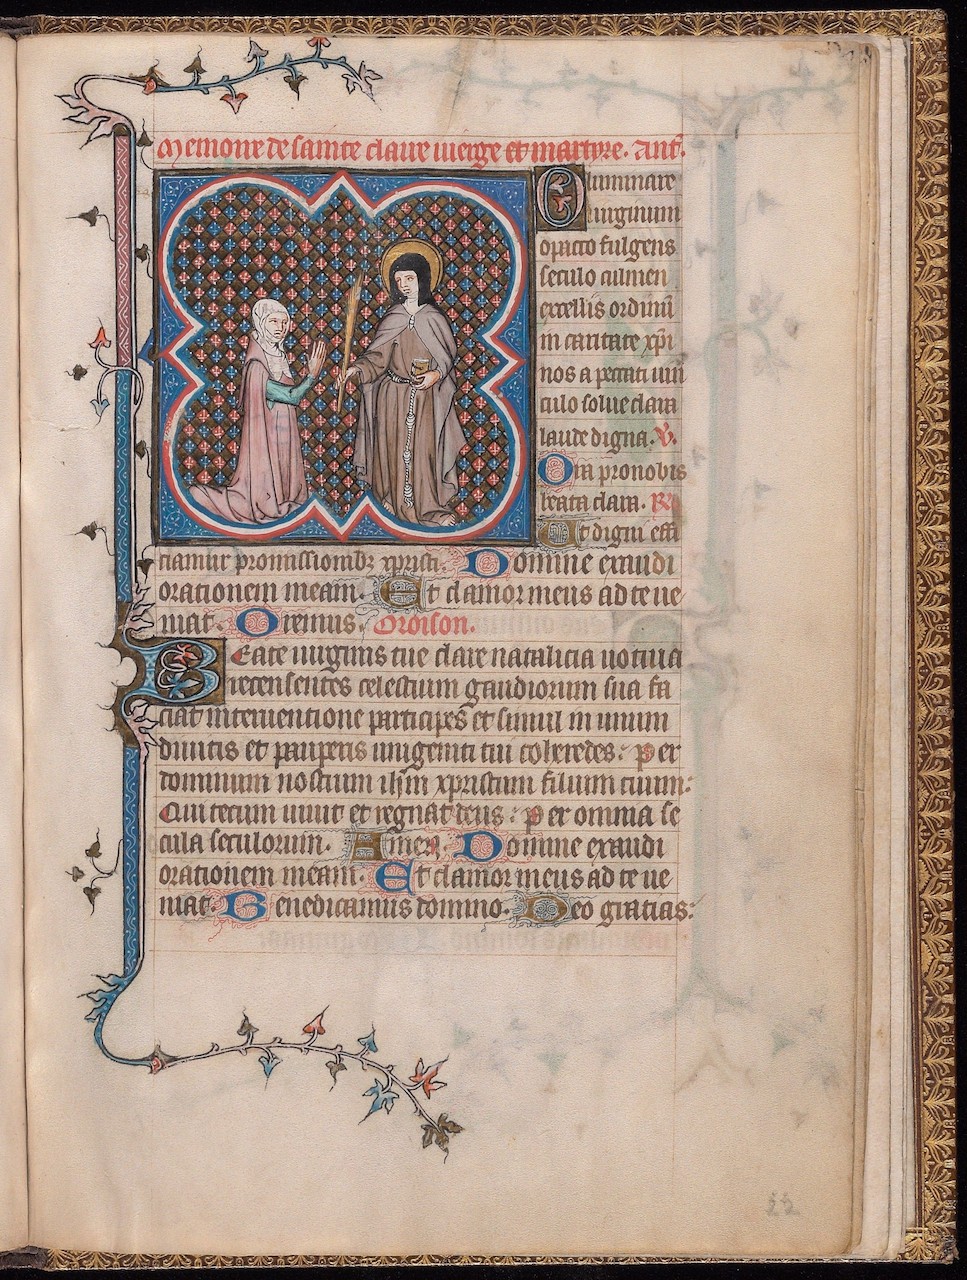 Memoire de sainte claire vierge et martyre. Ant.
O luminare
uirginum
opaco fulgens
seculo culmen
excellis ordinū
in caritate xp̄i
nos a peccati uin
culo solue clara
laude digna. V.
Ora pro nobis
beata clara. R.
Ut digni effi
ciamur promissionibz xpristi. Domine exaudi
orationem meam. Et clamor meus ad te ue
niat. Oremus. Oroison.
Beate uirginis tue clare natalicia uotiua
recensentes celestium gaudiorum sua fa
ciat interuentione participes et simul in unum
diuitis et pauperis unigeniti tui coheredes. Per
dominum nostrum ihm xpristum filium tuum.
Qui tecum uiuit et regnat deus. Per omnia se
cula seculorum. Amen. Domine exaudi
orationem meam. Et clamor meus ad te ue
niat. Benedicamus domino. Deo gratias:
22